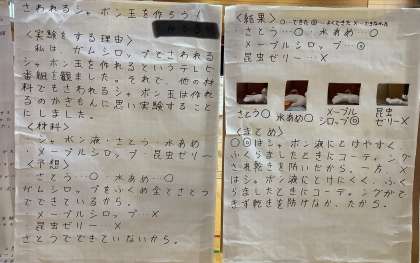 さわれるシャボン玉を作ろう!
<実験をする理由>
私は、ガムシロップでさわれる
シャボン玉を作れるというテレビ
番組を観ました。それで、他の材
料でもさわれるシャボン玉は作れ
るのかぎもんに思い実験すること
にしました。
<材料>
シャボン液・さとう・水あめ
メープルシロップ 昆虫ゼリー
<予想>
さとう…〇 水あめ…〇
ガムシロップをふくめ全てさとう
でできているから。
メープルシロップ…×
昆虫ゼリー…×
さとうでできていないから。
<結果>
さとう…〇 水あめ…〇
メープルシロップ…◎
昆虫ゼリー…×
さとう〇
水あめ〇
メープル
シロップ◎
昆虫
ゼリー×
<まとめ>
〇◎はシャボン液にとけやすく、
ふくらましたときにコーティング
され乾きを防いだから。一方、×
はシャボン液にとけにくく、ふく
らましたときにコーティングがで
きず乾きを防げなかったから。